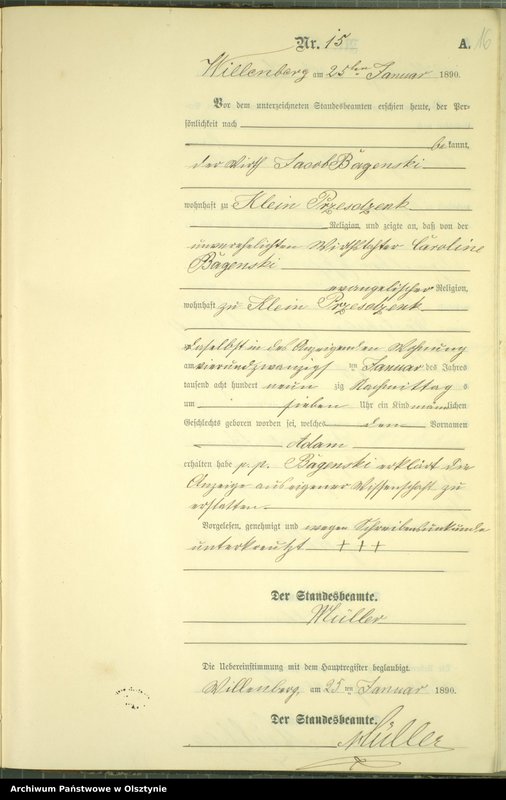 Nr. 15
A. 16
Willenberg am 25ten Januar 1890.
Vor dem unterzeichneten Standesbeamten erschien heute, der Per-
sönlichkeit nach
bekannt,
der Wirth Jacob Bagenski
wohnhaft zu Klein Przesdzenk
Religion, und zeigte an, daß von der
unverehelichten Wirthstochter Caroline
Bagenski
evangelischer Religion,
wohnhaft zu Klein Przesdzenk
daselbst in des Anzeigenden Wohnung
am vierundzwanzigsten Januar des Jahres
tausend acht hundert neunzig Nachmittags
um sieben Uhr ein Kind männlichen
Geschlechts geboren worden sei, welches den Vornamen
Adam
erhalten habe p. p. Bagenski erklärt die
Anzeige aus eigener Wissenschaft zu
erstatten.
Vorgelesen, genehmigt und wegen Schreibensunkunde
unterkreuzt + + +
Der Standesbeamte.
Müller
Die Uebereinstimmung mit dem Hauptregister beglaubigt.
Willenberg, am 25ten Januar 1890.
Der Standesbeamte.
Müller
Archiwum Państwowe w Olsztynie